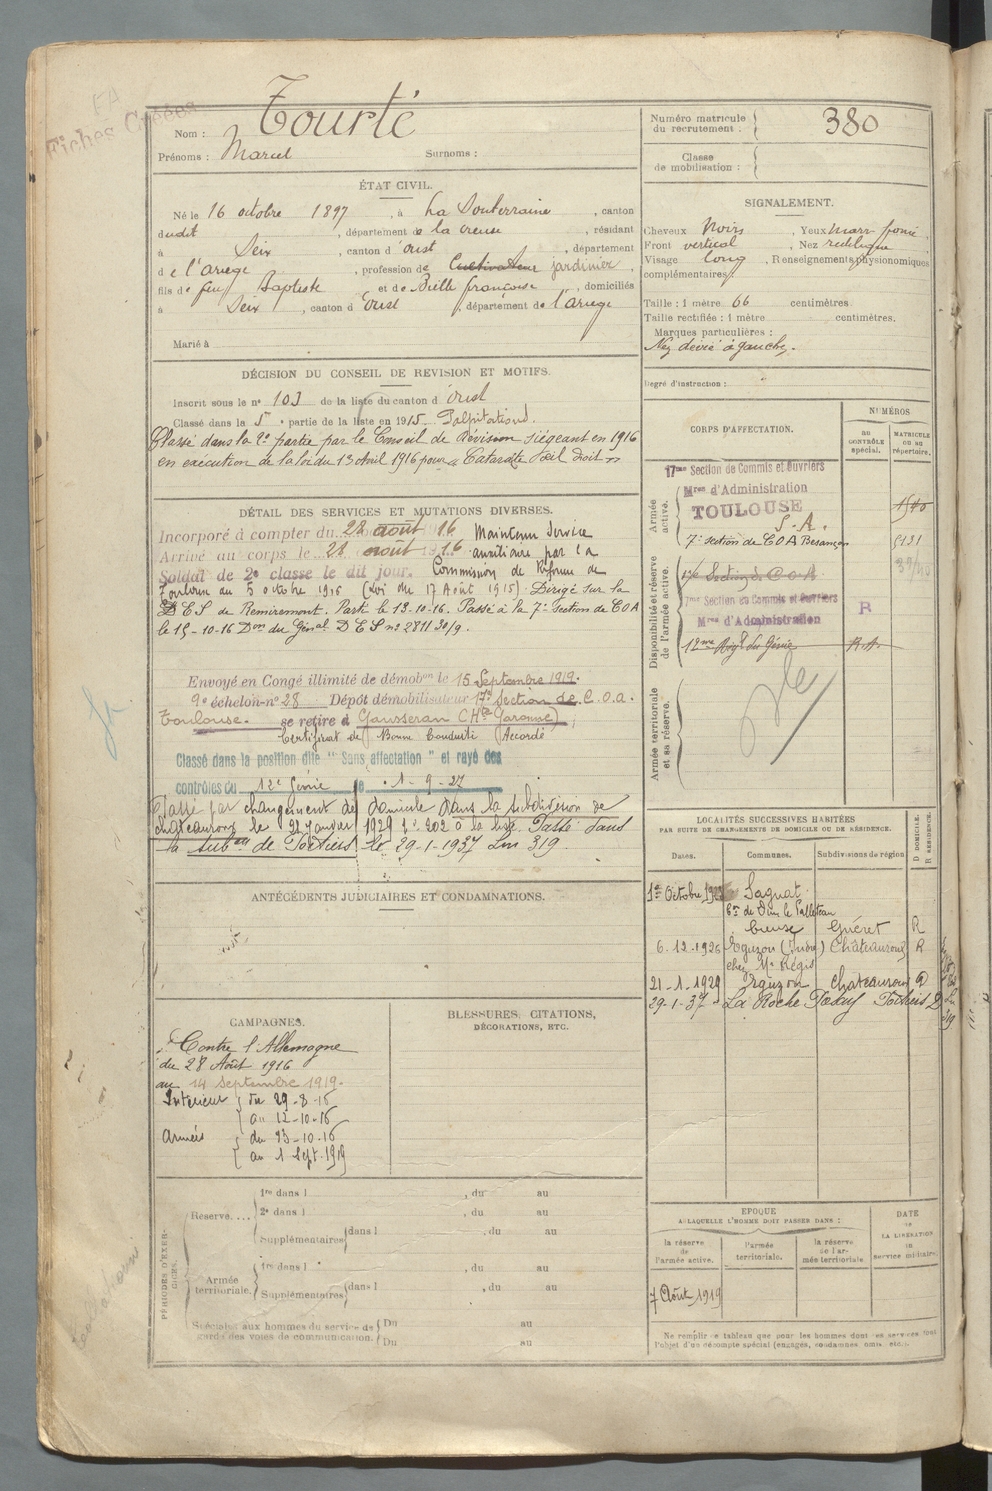 Fiches Créées
Nom : Tourté
Prénoms : Marcel Surnoms :
ÉTAT CIVIL.
Né le 16 octobre 1897, à La Souterraine, canton
dudit, département de la creuse, résidant
à Seix, canton d'oust, département
de l'ariege, profession de Cultivateur jardinier,
fils de feu Baptiste et de Bielle françoise, domiciliés
à Seix, canton d'Oust, département de l'ariege
Marié à
DÉCISION DU CONSEIL DE REVISION ET MOTIFS.
Inscrit sous le n° 103 de la liste du canton d'oust
Classé dans la 5e partie de la liste en 1915. Palpitations.
Classé dans la 2e partie par le Conseil de Révision siégeant en 1916
en exécution de la loi du 13 Avril 1916 pour « Cataracte œil droit »
DÉTAIL DES SERVICES ET MUTATIONS DIVERSES.
Incorporé à compter du 28 août 1916 Maintenu Service
Arrivé au corps le 28 août 1916 auxiliaire par la
Soldat de 2e classe le dit jour. Commission de Réforme de
Toulouse du 5 octobre 1916 (Loi du 17 Août 1915) Dirigé sur la
D E S de Remiremont. Parti le 13-10-16. Passé à la 7e Section de COA
le 15-10-16 Don du Génal D E S no 2811 30/9.
Envoyé en Congé illimité de démobon le 15 Septembre 1919.
9e échelon-n° 28 Dépôt démobilisateur 17e Section de C.O.A.
Toulouse. se retire à Gausseran (Hte Garonne)
Certificat de Bonne Conduite Accordé
Classé dans la position dite "Sans affectation" et rayé des
contrôles du 12e Génie le 1-9-27
Passé par changement de domicile dans la subdivision de
châteauroux le 21 janvier 1929 no 202 à la liste. Passé dans
la subon de Poitiers le 29-1-1937 Lm 319.
ANTÉCÉDENTS JUDICIAIRES ET CONDAMNATIONS.
CAMPAGNES.
Contre l'Allemagne
du 28 Août 1916
au 14 Septembre 1919.
Intérieur { du 29-8-16
au 12-10-16
Armées { du 13-10-16
au 1 Sept-1919
BLESSURES, CITATIONS,
DÉCORATIONS, ETC.
PÉRIODES D'EXERCICES.
Réserve....
1re dans l , du au
2e dans l , du au
Supplémentaires dans l , du au
Armée
territoriale.
1re dans l , du au
Supplémentaires dans l , du au
Spéciales aux hommes du service de
garde des voies de communication.
Du au
Du au
Numéro matricule
du recrutement : 380
Classe
de mobilisation :
SIGNALEMENT.
Cheveux Noirs Yeux marr foncé,
Front vertical, Nez rectiligne
Visage long, Renseignements physionomiques
complémentaires
Taille : 1 mètre 66 centimètres
Taille rectifiée : 1 mètre centimètres.
Marques particulières :
Nez dévié à gauche.
Degré d'instruction :
CORPS D'AFFECTATION.
NUMÉROS
AU CONTRÔLE spécial.
MATRICULE OU AU répertoire.
Armée active.
17me Section de Commis et Ouvriers
Mres d'Administration
TOULOUSE
S.A.
7e section de COA Besançon 5131
Disponibilité et réserve de l'armée active.
17e Section de C O A
17me Section de Commis et Ouvriers
Mres d'Administration R
12me Rigt du Génie R.A.
Armée territoriale et sa réserve.
LOCALITÉS SUCCESSIVES HABITÉES
PAR SUITE DE CHANGEMENTS DE DOMICILE OU DE RÉSIDENCE.
Dates. Communes. Subdivisions de région
D DOMICILE. R RÉSIDENCE.
1er Octobre Sagnat
Con de Dun le Palleteau
Creuse Guéret R
6-12-1926 Eguzon (Indre) Châteauroux R
chez Mr Régis
21-1-1929 Eguzon chateauroux D
29-1-37 La Roche Posay Poitiers D
Lm 319
ÉPOQUE
A LAQUELLE L'HOMME DOIT PASSER DANS :
DATE
DE LA LIBÉRATION
DU service militaire.
la réserve de l'armée active.
l'armée territoriale.
la réserve de l'armée territoriale.
7 Août 1919
Ne remplir ce tableau que pour les hommes dont les services font
l'objet d'un décompte spécial (engagés, condamnés omis, etc.).